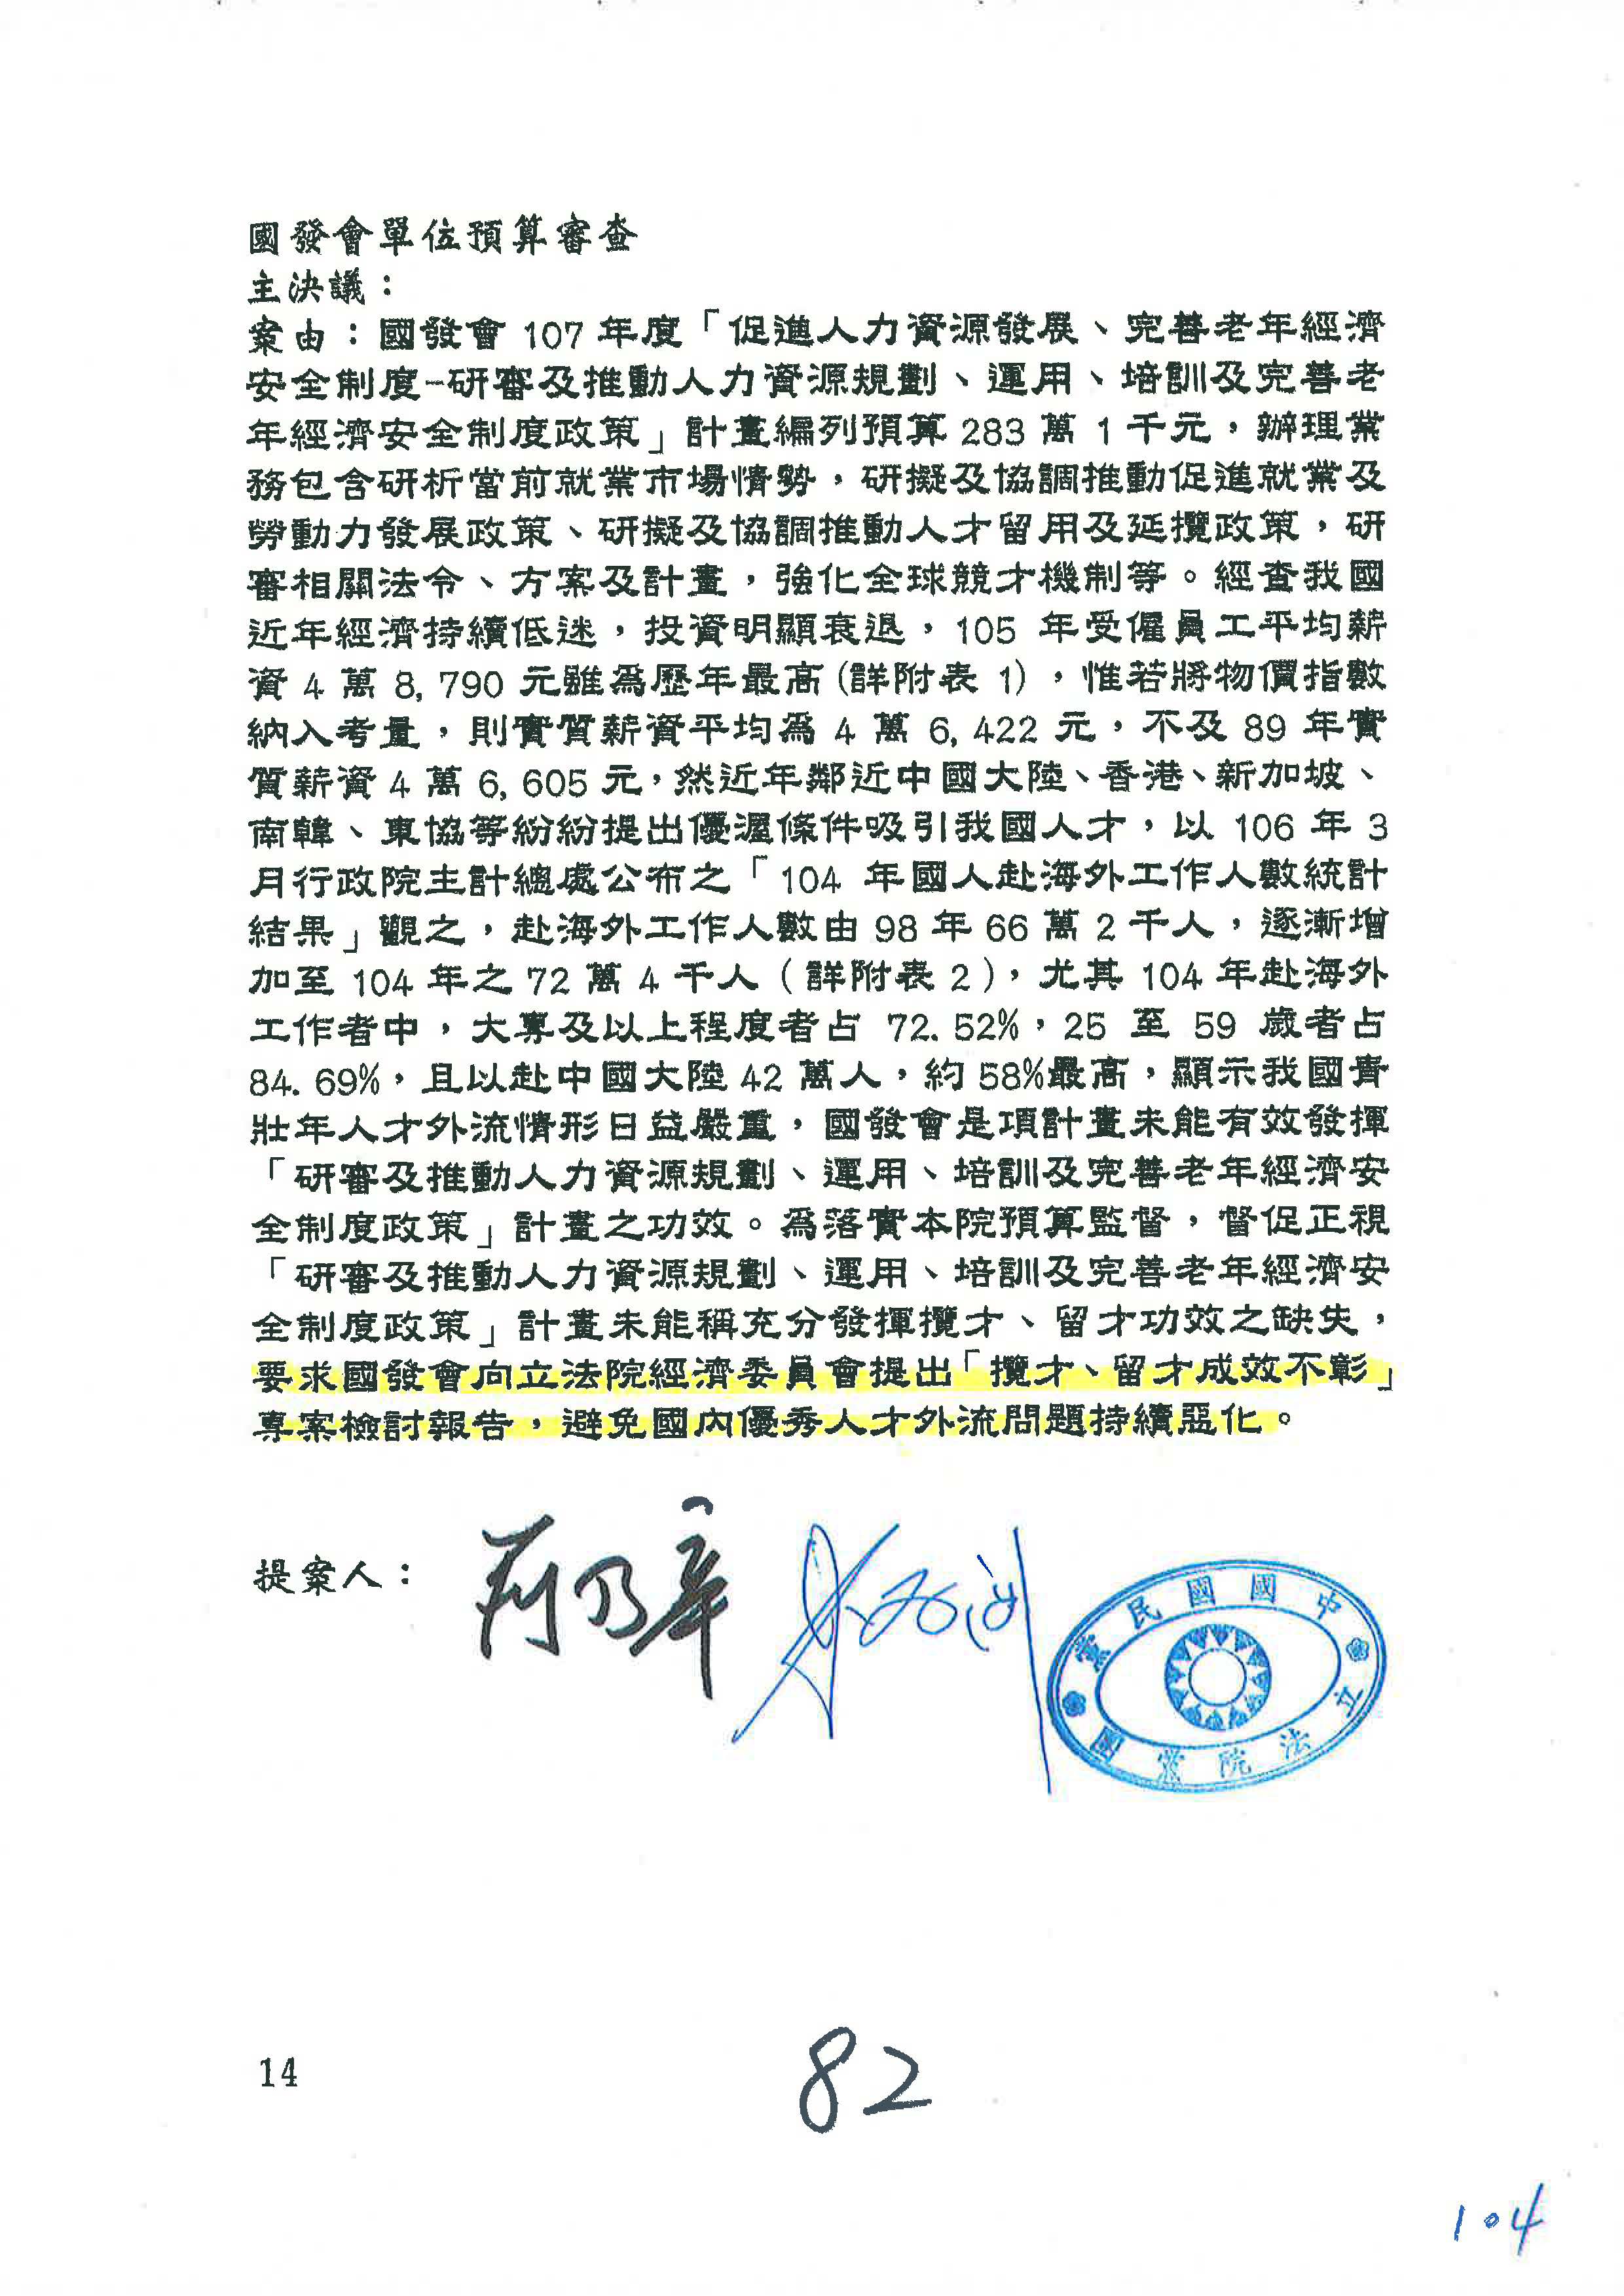 國發會單位預算審查
主決議：
案由：國發會 107 年度「促進人力資源發展、完善老年經濟
安全制度-研審及推動人力資源規劃、運用、培訓及完善老
年經濟安全制度政策」計畫編列預算 283 萬 1 千元，辦理業
務包含研析當前就業市場情勢，研擬及協調推動促進就業及
勞動力發展政策、研擬及協調推動人才留用及延攬政策，研
審相關法令、方案及計畫，強化全球競才機制等。經查我國
近年經濟持續低迷，投資明顯衰退，105 年受僱員工平均薪
資 4 萬 8,790 元雖為歷年最高(詳附表 1)，惟若將物價指數
納入考量，則實質薪資平均為 4 萬 6,422 元，不及 89 年實
質薪資 4 萬 6,605 元，然近年鄰近中國大陸、香港、新加坡、
南韓、東協等紛紛提出優渥條件吸引我國人才，以 106 年 3
月行政院主計總處公布之「104 年國人赴海外工作人數統計
結果」觀之，赴海外工作人數由 98 年 66 萬 2 千人，逐漸增
加至 104 年之 72 萬 4 千人（詳附表 2），尤其 104 年赴海外
工作者中，大專及以上程度者占 72.52%，25 至 59 歲者占
84.69%，且以赴中國大陸 42 萬人，約 58%最高，顯示我國青
壯年人才外流情形日益嚴重，國發會是項計畫未能有效發揮
「研審及推動人力資源規劃、運用、培訓及完善老年經濟安
全制度政策」計畫之功效。為落實本院預算監督，督促正視
「研審及推動人力資源規劃、運用、培訓及完善老年經濟安
全制度政策」計畫未能稱充分發揮攬才、留才功效之缺失，
要求國發會向立法院經濟委員會提出「攬才、留才成效不彰」
專案檢討報告，避免國內優秀人才外流問題持續惡化。
提案人：
中國國民黨
立法院黨團
14
82
104